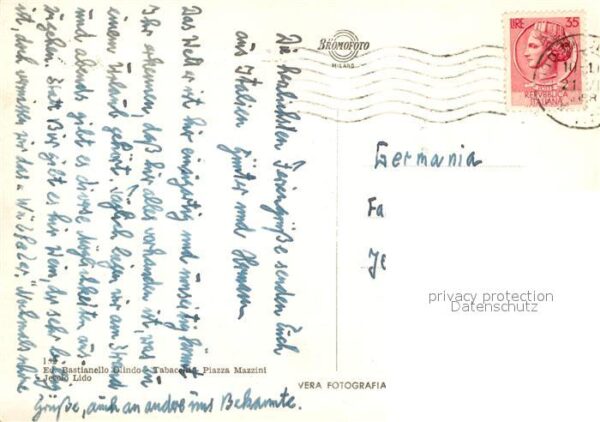 Die herzlichsten Feriengrüße senden Euch
aus Italien Günter und Hannen
Das Wetter ist hier einzigartig und umseitig könnt
Ihr erkennen, daß hier alles vorhanden ist, was in
einem Urlaub gehört. Täglich liegen wir am Strand
und abends gibt es diverse Möglichkeiten aus-
zugehen. Statt Bier gibt es hier Wein, der sehr billig
ist, doch vermissen wir das "Wülfeler". Nochmals schöne
Grüße, auch an andere uns Bekannte.
BROMOFOTO
MILANO
LIRE 35
REPUBBLICA
ITALIANA
Germania
Fa
Je
privacy protection
Datenschutz
Ed. Bastianello Olindo - Tabacchi - Piazza Mazzini
Jesolo Lido
VERA FOTOGRAFIA